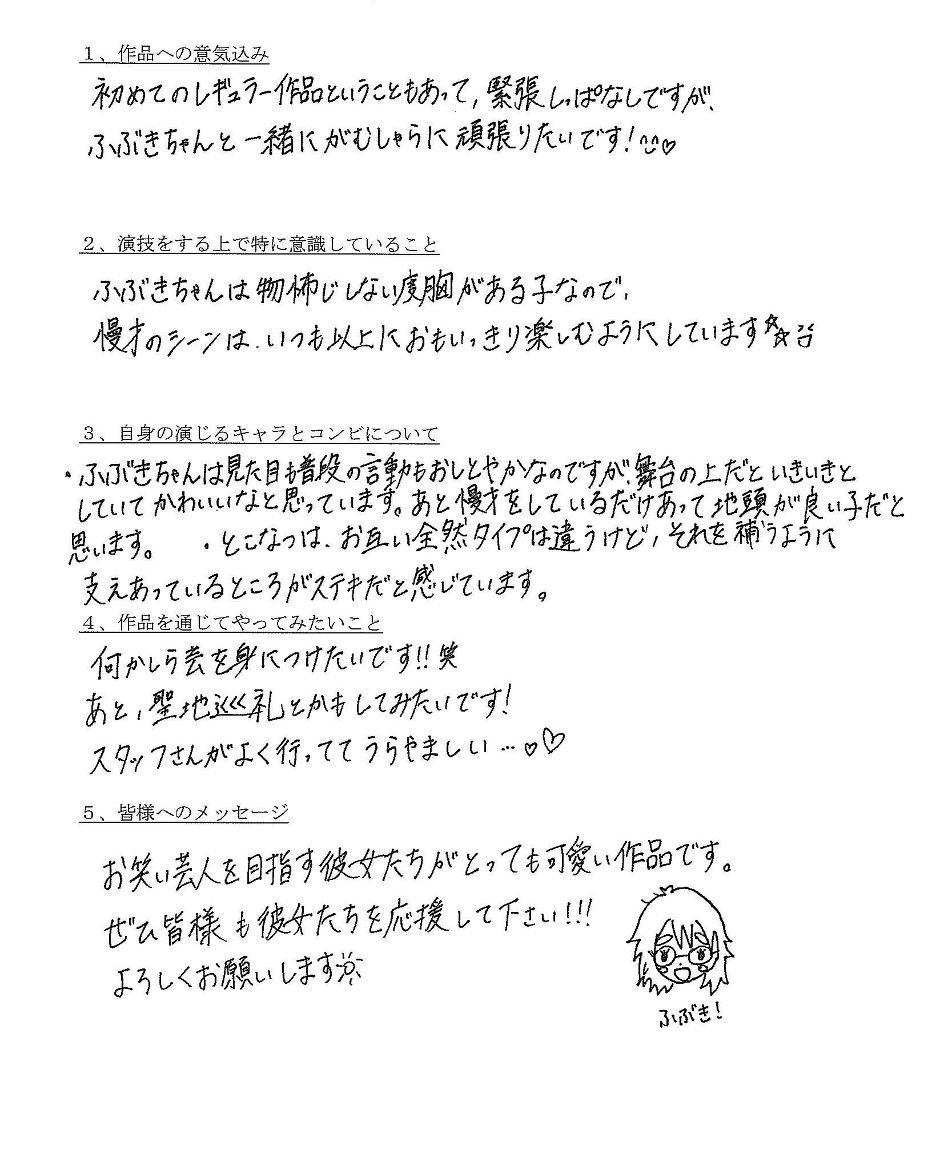 1、作品への意気込み
初めてのレギュラー作品ということもあって、緊張しっぱなしですが、
ふぶきちゃんと一緒にがむしゃらに頑張りたいです!^^♡
2、演技をする上で特に意識していること
ふぶきちゃんは物怖じしない度胸がある子なので、
慢才のシーンは、いつも以上におもいっきり楽しむようにしています☆☆
3、自身の演じるキャラとコンビについて
・ふぶきちゃんは見た目も普段の言動もおしとやかなのですが、舞台の上だといきいきと
していてかわいいなと思っています。あと慢才をしているだけあって地頭が良い子だと
思います。 ・とこなつは、お互い全然タイプは違うけど、それを補うように
支えあっているところがステキだと感じています。
4、作品を通じてやってみたいこと
何かしら芸を身につけたいです!!笑
あと、聖地巡礼とかもしてみたいです!
スタッフさんがよく行っててうらやましい…♡♡
5、皆様へのメッセージ
お笑い芸人を目指す彼女たちがとっても可愛い作品です。
ぜひ皆様も彼女たちを応援して下さい!!!
よろしくお願いします
ふぶき!